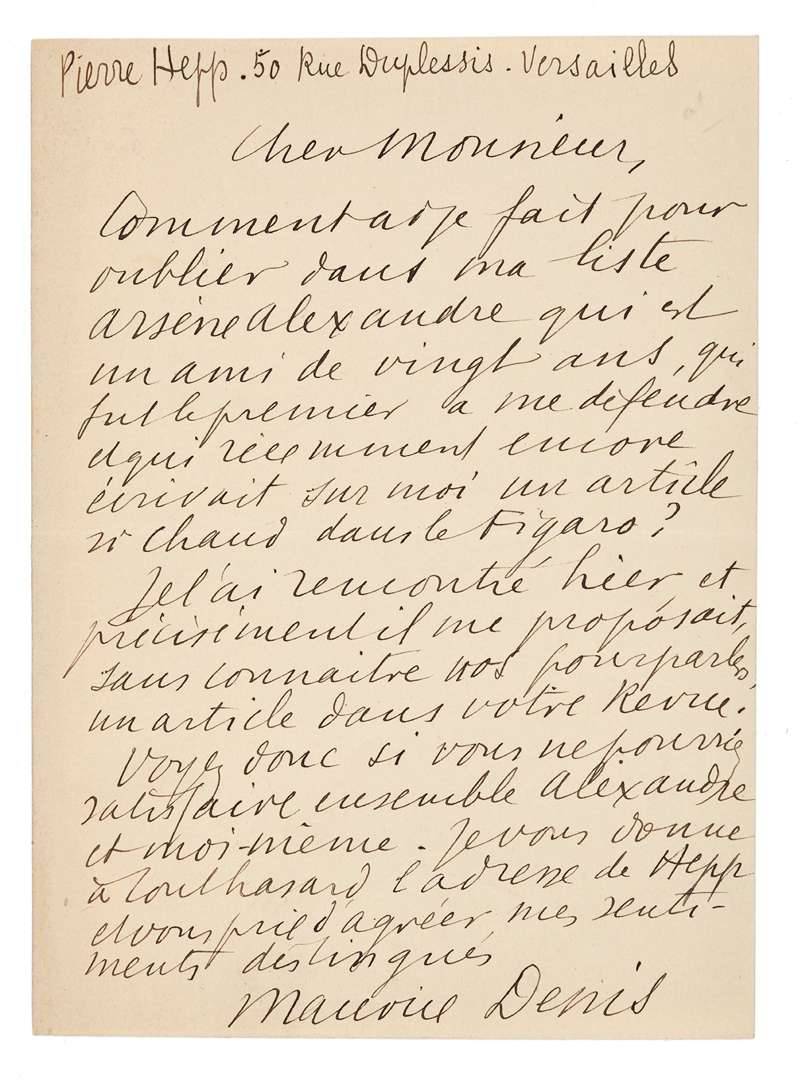 Pierre Hepp. 50 Rue Duplessis. Versailles
Cher Monsieur,
Comment ai je fait pour
oublier dans ma liste
Arsène Alexandre qui est
un ami de vingt ans, qui
fut le premier à me defendre
et qui récemment encore
écrivait sur moi un article
si chaud dans le Figaro?
Je l'ai rencontré hier, et
précisément il me proposait,
sans connaitre nos pourparlers,
un article dans votre Revue.
Voyez donc si vous ne pourriez
satisfaire ensemble Alexandre
et moi-même. Je vous donne
à tout hasard l'adresse de Hepp
et vous prie d'agréer mes senti-
ments distingués
Maurice Denis